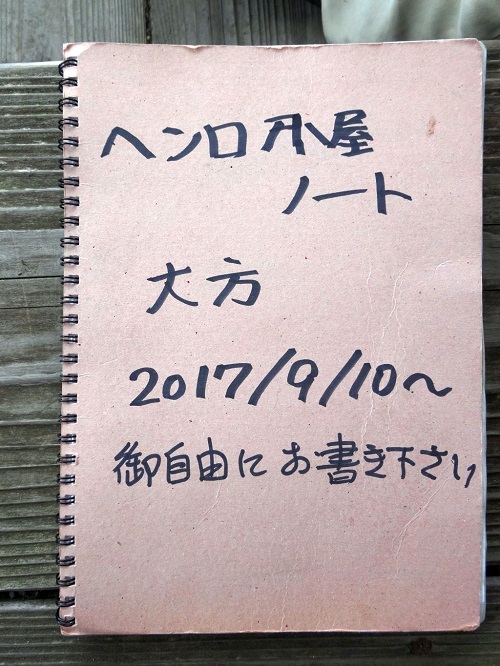 ヘンロ小屋
ノート
大方
2017/9/10～
御自由にお書き下さい